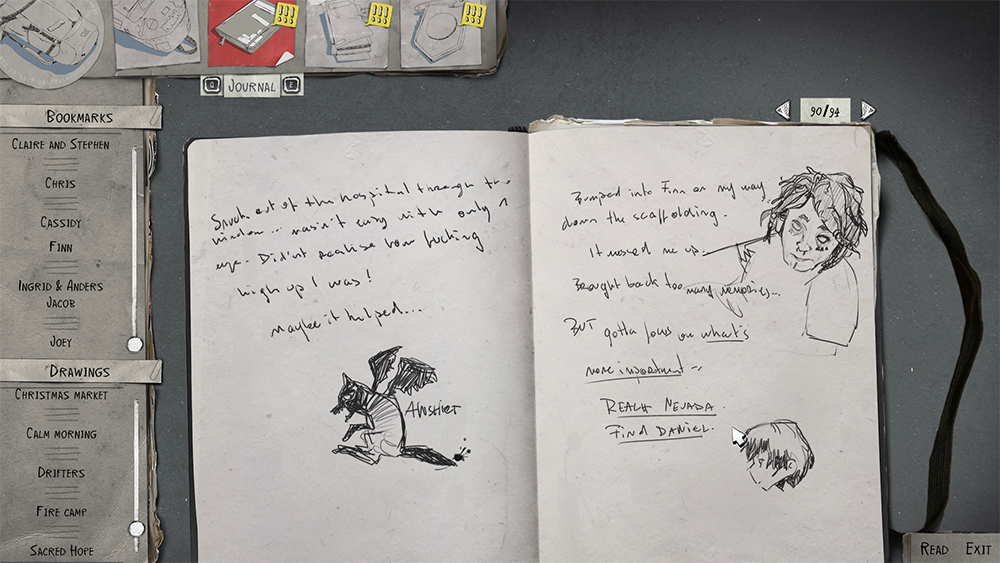 Q
JOURNAL
E
BOOKMARKS
CLAIRE AND STEPHEN
CHRIS
CASSIDY
FINN
INGRID & ANDERS
JACOB
JOEY
DRAWINGS
CHRISTMAS MARKET
CALM MORNING
DRIFTERS
FIRE CAMP
SACRED HOPE
90/94
Snuck out of the hospital through the
window... wasn't easy with only 1
eye. Didn't realise how fucking
high up I was!
maybe it helped...
Bumped into Finn on my way
down the scaffolding.
It messed me up.
Brought back too many memories...
BUT gotta focus on what's
more important --
REACH NEVADA.
FIND DANIEL.
READ EXIT